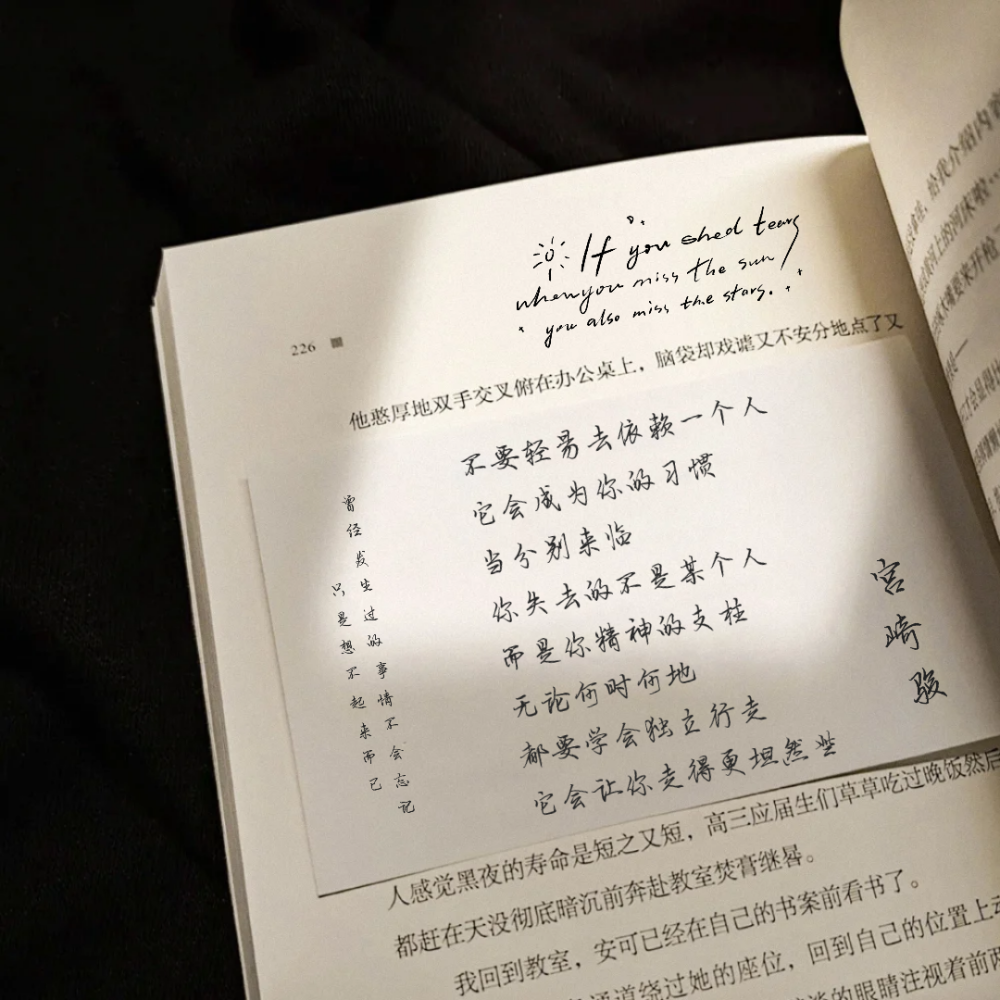 If you shed tears
when you miss the sun,
you also miss the stars.
226
他憨厚地双手交叉俯在办公桌上，脑袋却戏谑又不安分地点了又
不要轻易去依赖一个人
它会成为你的习惯
当分别来临
你失去的不是某个人
而是你精神的支柱
无论何时何地
都要学会独立行走
它会让你走得更坦然些
宫崎骏
曾经发生过的事情不会忘记
只是想不起来而已
人感觉黑夜的寿命是短之又短，高三应届生们草草吃过晚饭然后
都赶在天没彻底暗沉前奔赴教室焚膏继晷。
我回到教室，安可已经在自己的书案前看书了。
通道绕过她的座位，回到自己的位置上
的眼睛注视着前两
给我介绍内
河上的河床啦
来开枪